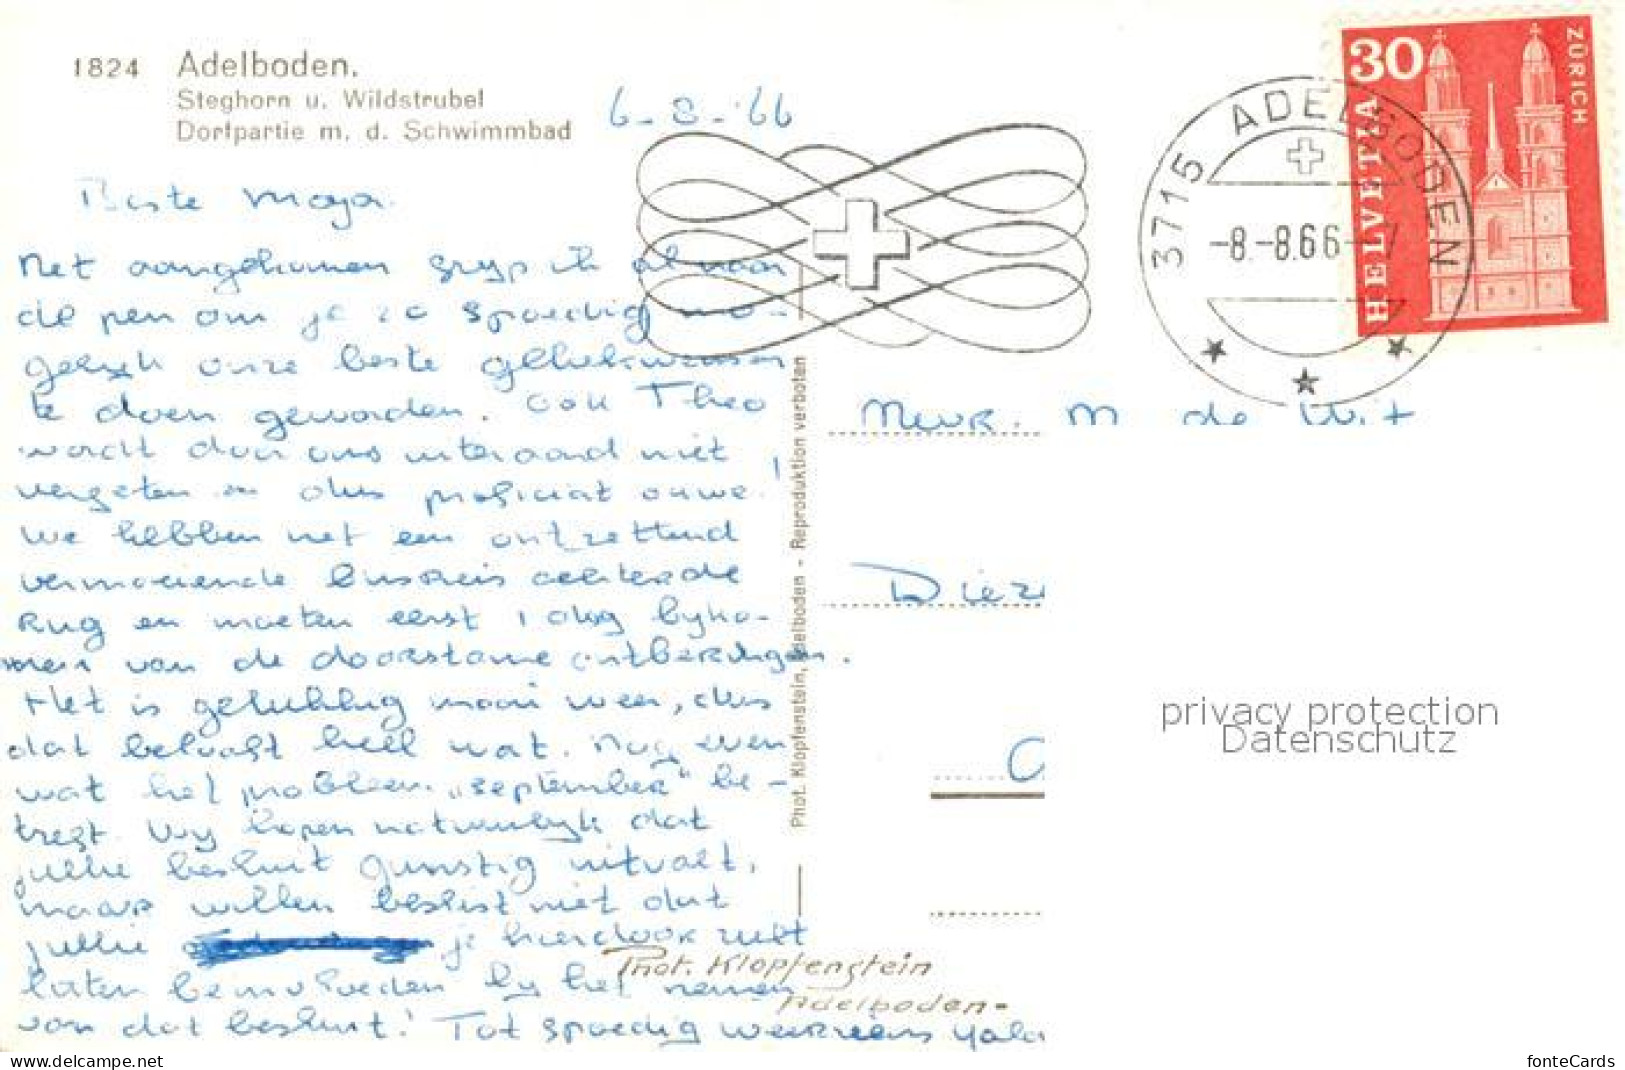 1824 Adelboden.
Steghorn u. Wildstrubel
Dorfpartie m. d. Schwimmbad
6-8-'66
30
ZÜRICH
HELVETIA
3715 ADELBODEN
-8.-8.66-7
Beste Maya.
Net aangekomen gryp ik al naar
de pen om je zo spoedig mo-
gelyk onze beste gelukwensen
te doen geworden. Ook Theo
wordt door ons uiteraard niet
vergeten en dus proficiat ouwe!
We hebben net een ontzettend
vermoeiende busreis achter de
rug en moeten eerst 1 dag byko-
men van de doorstane ontberingen.
Het is gelukkig mooi weer, dus
dat belooft heel wat. Nog even
wat het probleem "september" be-
treft. Wy hopen natuurlyk dat
jullie besluit gunstig uitvalt,
maar willen beslist niet dat
jullie je hierdoor zult
laten beinvloeden by het nemen
van dat besluit! Tot spoedig weerziens
Phot. Klopfenstein, Adelboden - Reproduktion verboten
Mevr. M de Wit
Diez
Phot. Klopfenstein
Adelboden-
privacy protection
Datenschutz
www.delcampe.net
fonteCards